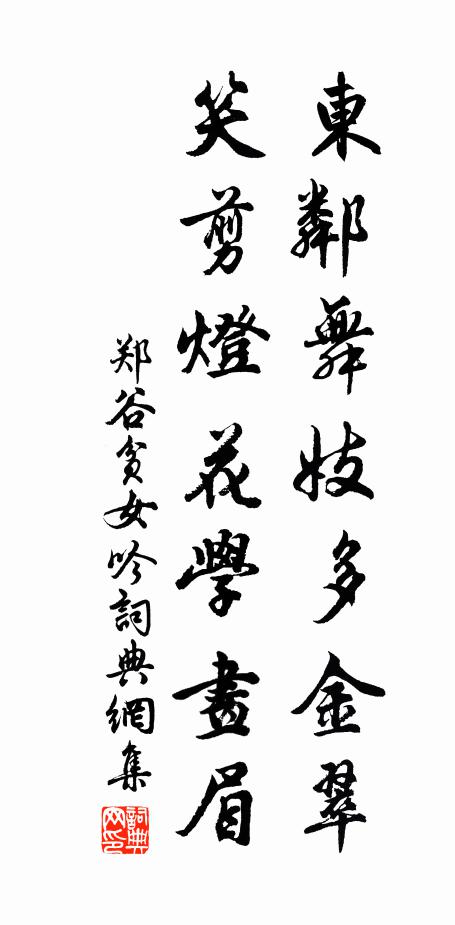 東鄰舞妓多金翠
笑剪燈花學畫眉
郑谷貧女吟詞典網集
詞典
网印